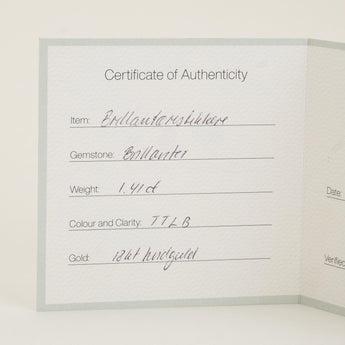 Certificate of Authenticity
Item: Brillantørestikkere
Gemstone: Brillanter
Weight: 1.41 ct
Colour and Clarity: TTLB
Gold: 18kt hvidguld
Date:
Verified